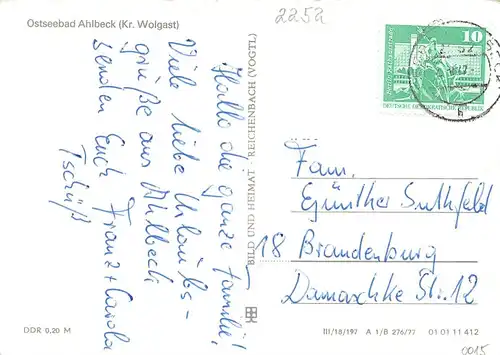 Ostseebad Ahlbeck (Kr. Wolgast)
2252
Hallo die ganze Familie!
Viele liebe Urlaubs-
grüße aus Ahlbeck
senden Euch Franz + Carola
Tschüß
BILD UND HEIMAT · REICHENBACH (VOGTL)
10
DEUTSCHE DEMOKRATISCHE REPUBLIK
Fam.
Günther Suthfeld
18 Brandenburg
Damaschke Str. 12
DDR 0,20 M
III/18/197 A 1/B 276/77 01 01 11 412
0015